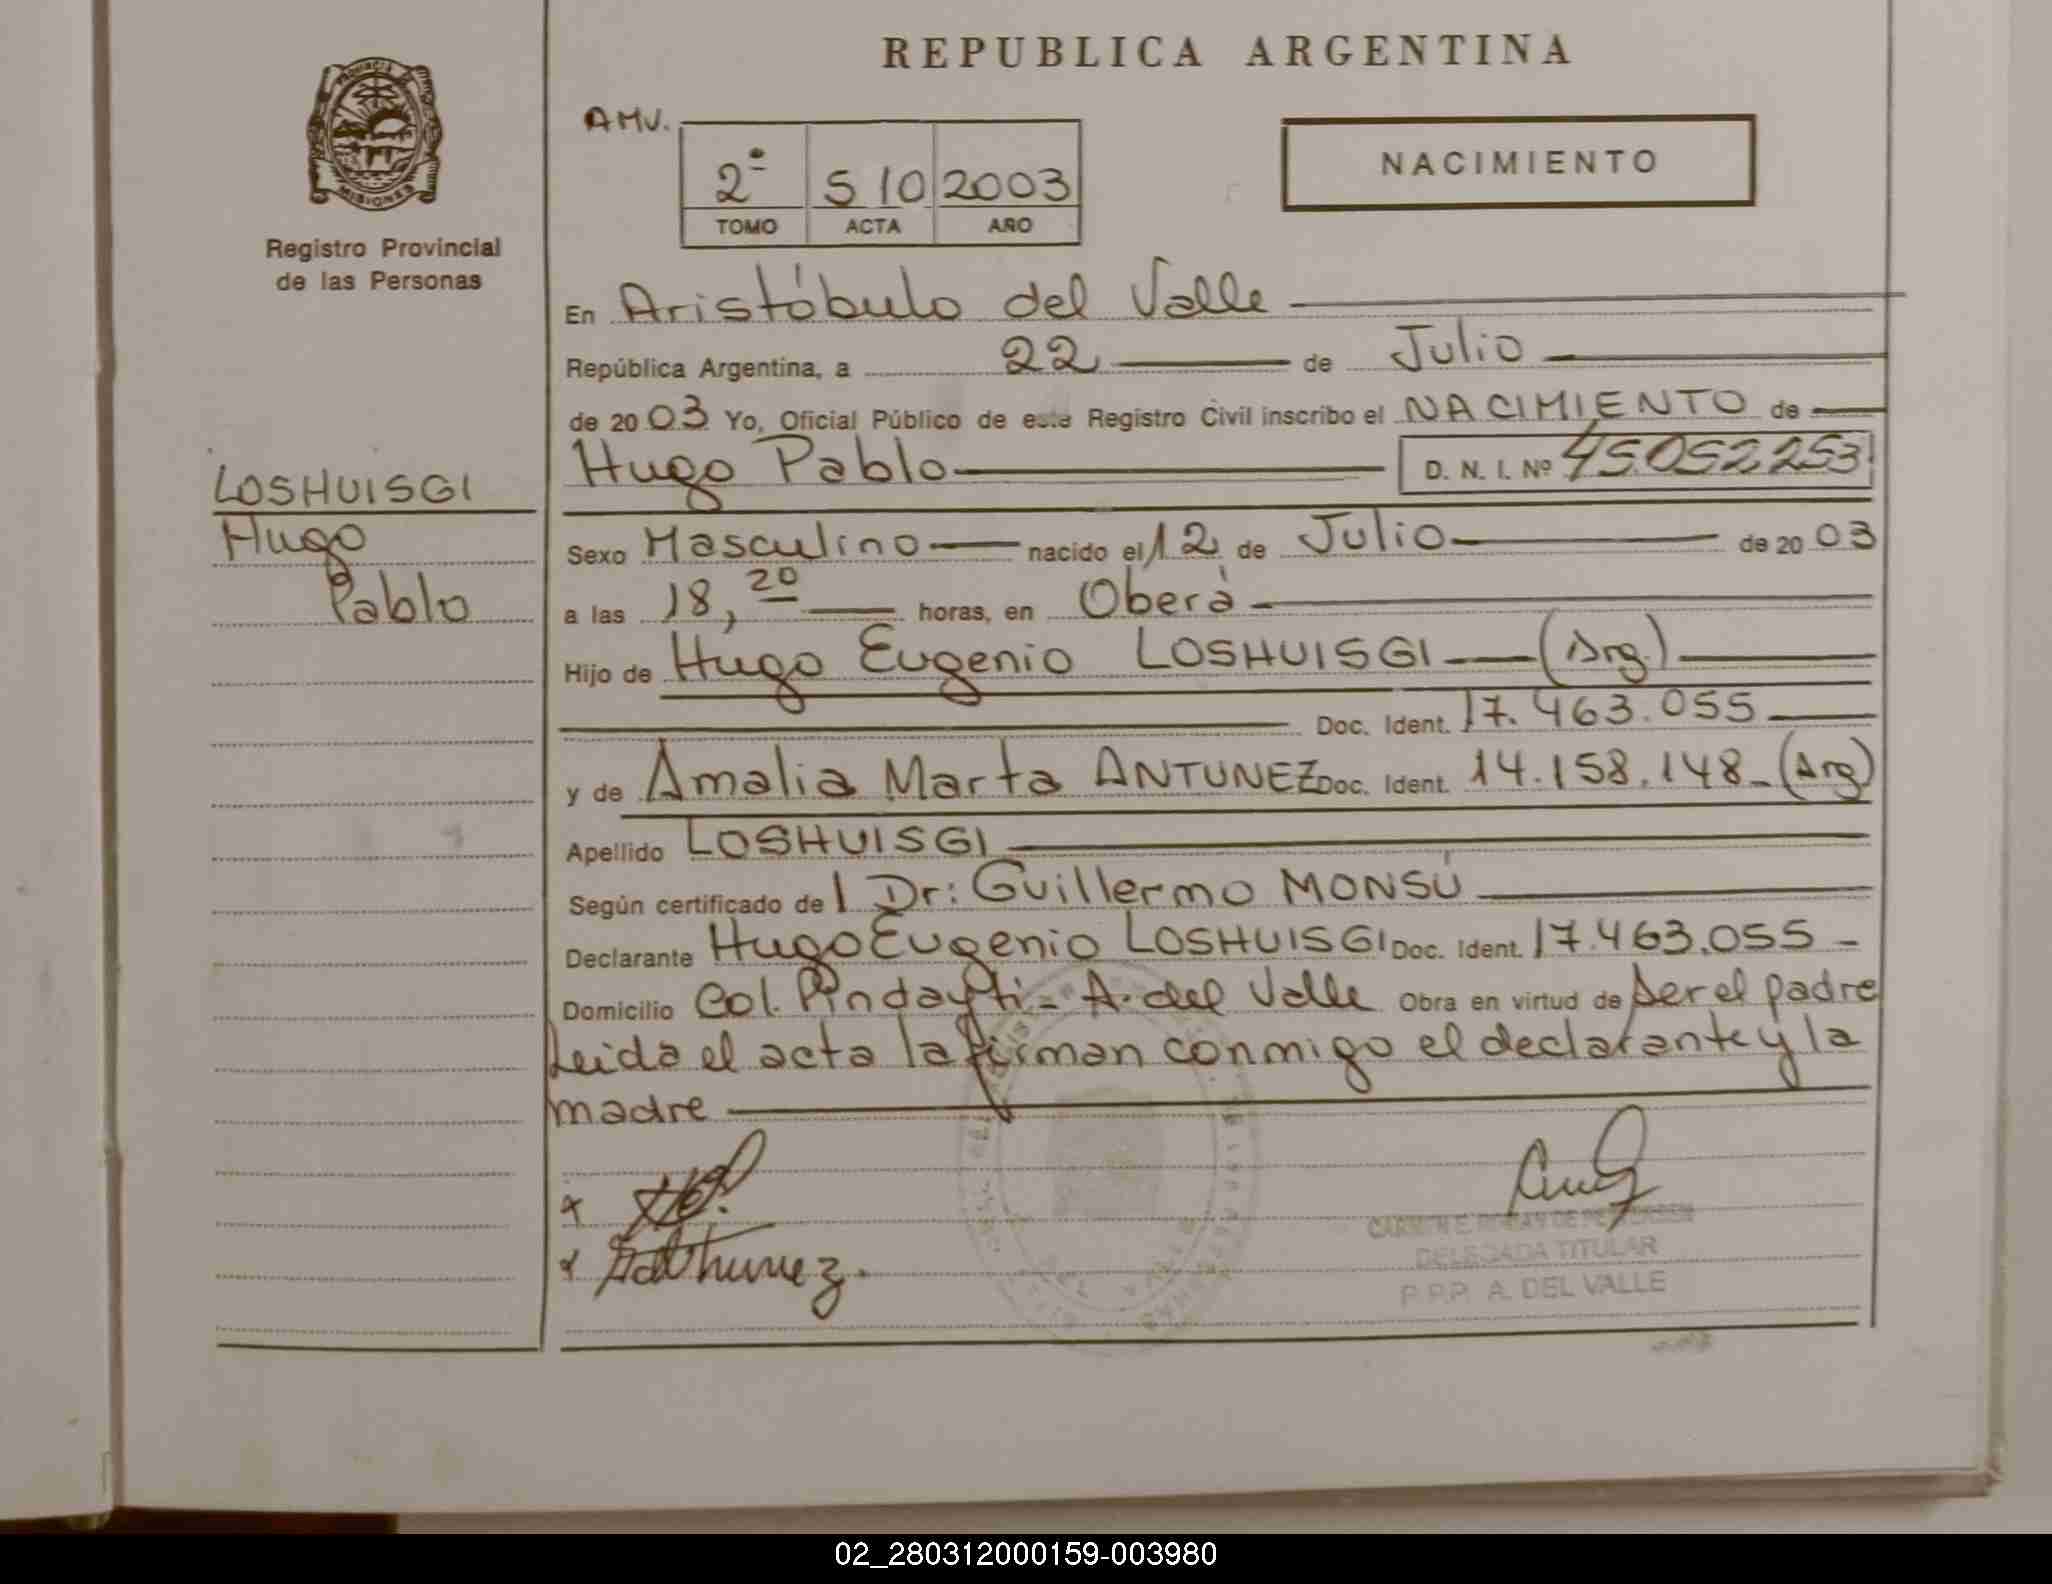 REPUBLICA ARGENTINA
PROVINCIA DE
MISIONES
Registro Provincial
de las Personas
AMV.
2º 510 2003
TOMO ACTA AÑO
NACIMIENTO
En Aristóbulo del Valle
República Argentina, a 22 de Julio
de 2003 Yo, Oficial Público de este Registro Civil inscribo el NACIMIENTO de
Hugo Pablo D. N. I. Nº 45.052.253
LOSHUISGI
Hugo
Pablo
Sexo Masculino nacido el 12 de Julio de 2003
a las 18,20 horas, en Oberá
Hijo de Hugo Eugenio LOSHUISGI (Arg.)
Doc. Ident. 17.463.055
y de Amalia Marta ANTUNEZ Doc. Ident. 14.158.148 - (Arg)
Apellido LOSHUISGI
Según certificado del Dr: Guillermo MONSÚ
Declarante Hugo Eugenio LOSHUISGI Doc. Ident. 17.463.055 -
Domicilio Col. Pindaytí - A. del Valle Obra en virtud de ser el padre
Leida el acta la firman conmigo el declarante y la
madre
DELEGADA TITULAR
P.P.P. A. DEL VALLE
02_280312000159-003980